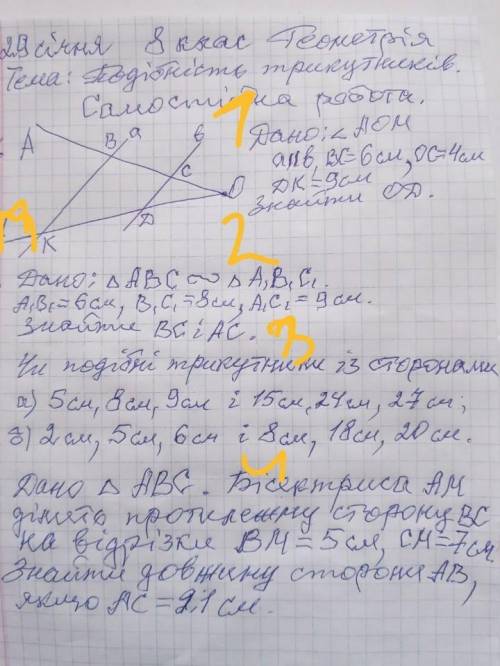 29 січня 8 клас Геометрія
Тема: Подібність трикутників.
Самостійна робота.
1
Дано: ∠ АОМ
а∥в, ВС=6см, ОС=4см
DK=9см
Знайти OD.
А В а в С О D К
2
Дано: △ АВС ∾ △ А₁В₁С₁.
А₁В₁=6см, В₁С₁=8см, А₁С₁=9см.
Знайти ВС і АС.
3
Чи подібні трикутники із сторонами
а) 5см, 8см, 9см і 15см, 24см, 27см;
б) 2см, 5см, 6см і 8см, 18см, 20см.
4
Дано △ АВС. Бісектриса АМ
ділить протилежну сторону ВС
на відрізки ВМ=5см, СМ=7см
Знайти довжину сторони АВ,
якщо АС=21см.